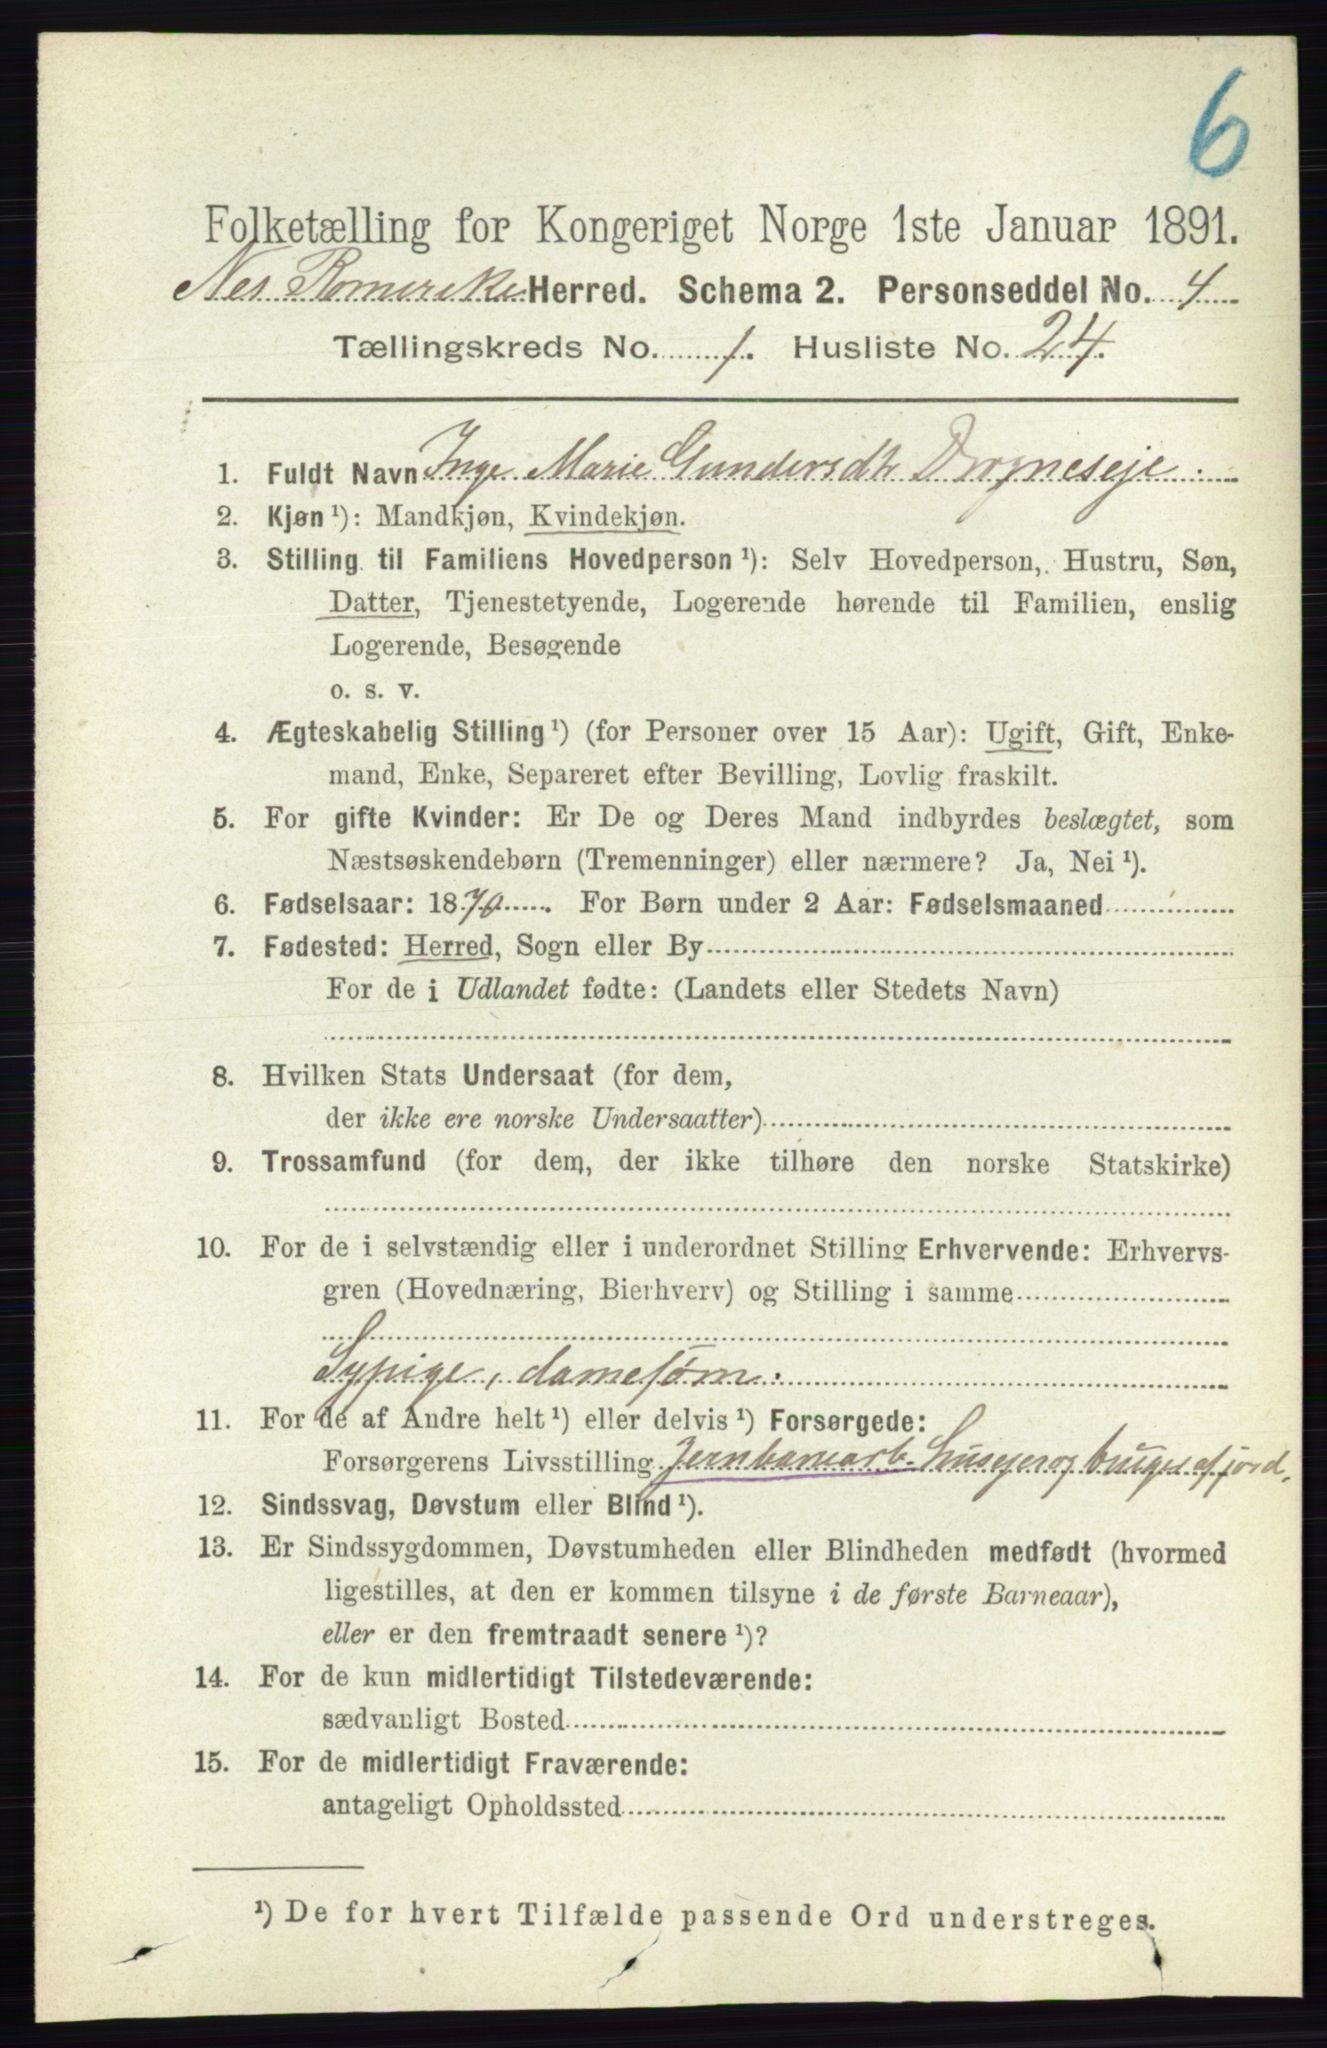 6
Folketælling for Kongeriget Norge 1ste Januar 1891.
Nes Romerike Herred. Schema 2. Personseddel No. 4
Tællingskreds No. 1. Husliste No. 24.
1. Fuldt Navn Inge Marie Gundersdtr Drogneseje
2. Kjøn ¹): Mandkjøn, Kvindekjøn.
3. Stilling til Familiens Hovedperson ¹): Selv Hovedperson, Hustru, Søn,
Datter, Tjenestetyende, Logerende hørende til Familien, enslig
Logerende, Besøgende
o. s. v.
4. Ægteskabelig Stilling ¹) (for Personer over 15 Aar): Ugift, Gift, Enke-
mand, Enke, Separeret efter Bevilling, Lovlig fraskilt.
5. For gifte Kvinder: Er De og Deres Mand indbyrdes beslægtet, som
Næstsøskendebørn (Tremenninger) eller nærmere? Ja, Nei ¹).
6. Fødselsaar: 1870. For Børn under 2 Aar: Fødselsmaaned
7. Fødested: Herred, Sogn eller By
For de i Udlandet fødte: (Landets eller Stedets Navn)
8. Hvilken Stats Undersaat (for dem,
der ikke ere norske Undersaatter)
9. Trossamfund (for dem, der ikke tilhøre den norske Statskirke)
10. For de i selvstændig eller i underordnet Stilling Erhvervende: Erhvervs-
gren (Hovednæring, Bierhverv) og Stilling i samme
Sypige, damesøm.
11. For de af Andre helt ¹) eller delvis ¹) Forsørgede:
Forsørgerens Livsstilling Jernbanearb. Husejer og bruger af jord.
12. Sindssvag, Døvstum eller Blind ¹).
13. Er Sindssygdommen, Døvstumheden eller Blindheden medfødt (hvormed
ligestilles, at den er kommen tilsyne i de første Barneaar),
eller er den fremtraadt senere ¹)?
14. For de kun midlertidigt Tilstedeværende:
sædvanligt Bosted
15. For de midlertidigt Fraværende:
antageligt Opholdssted
¹) De for hvert Tilfælde passende Ord understreges.